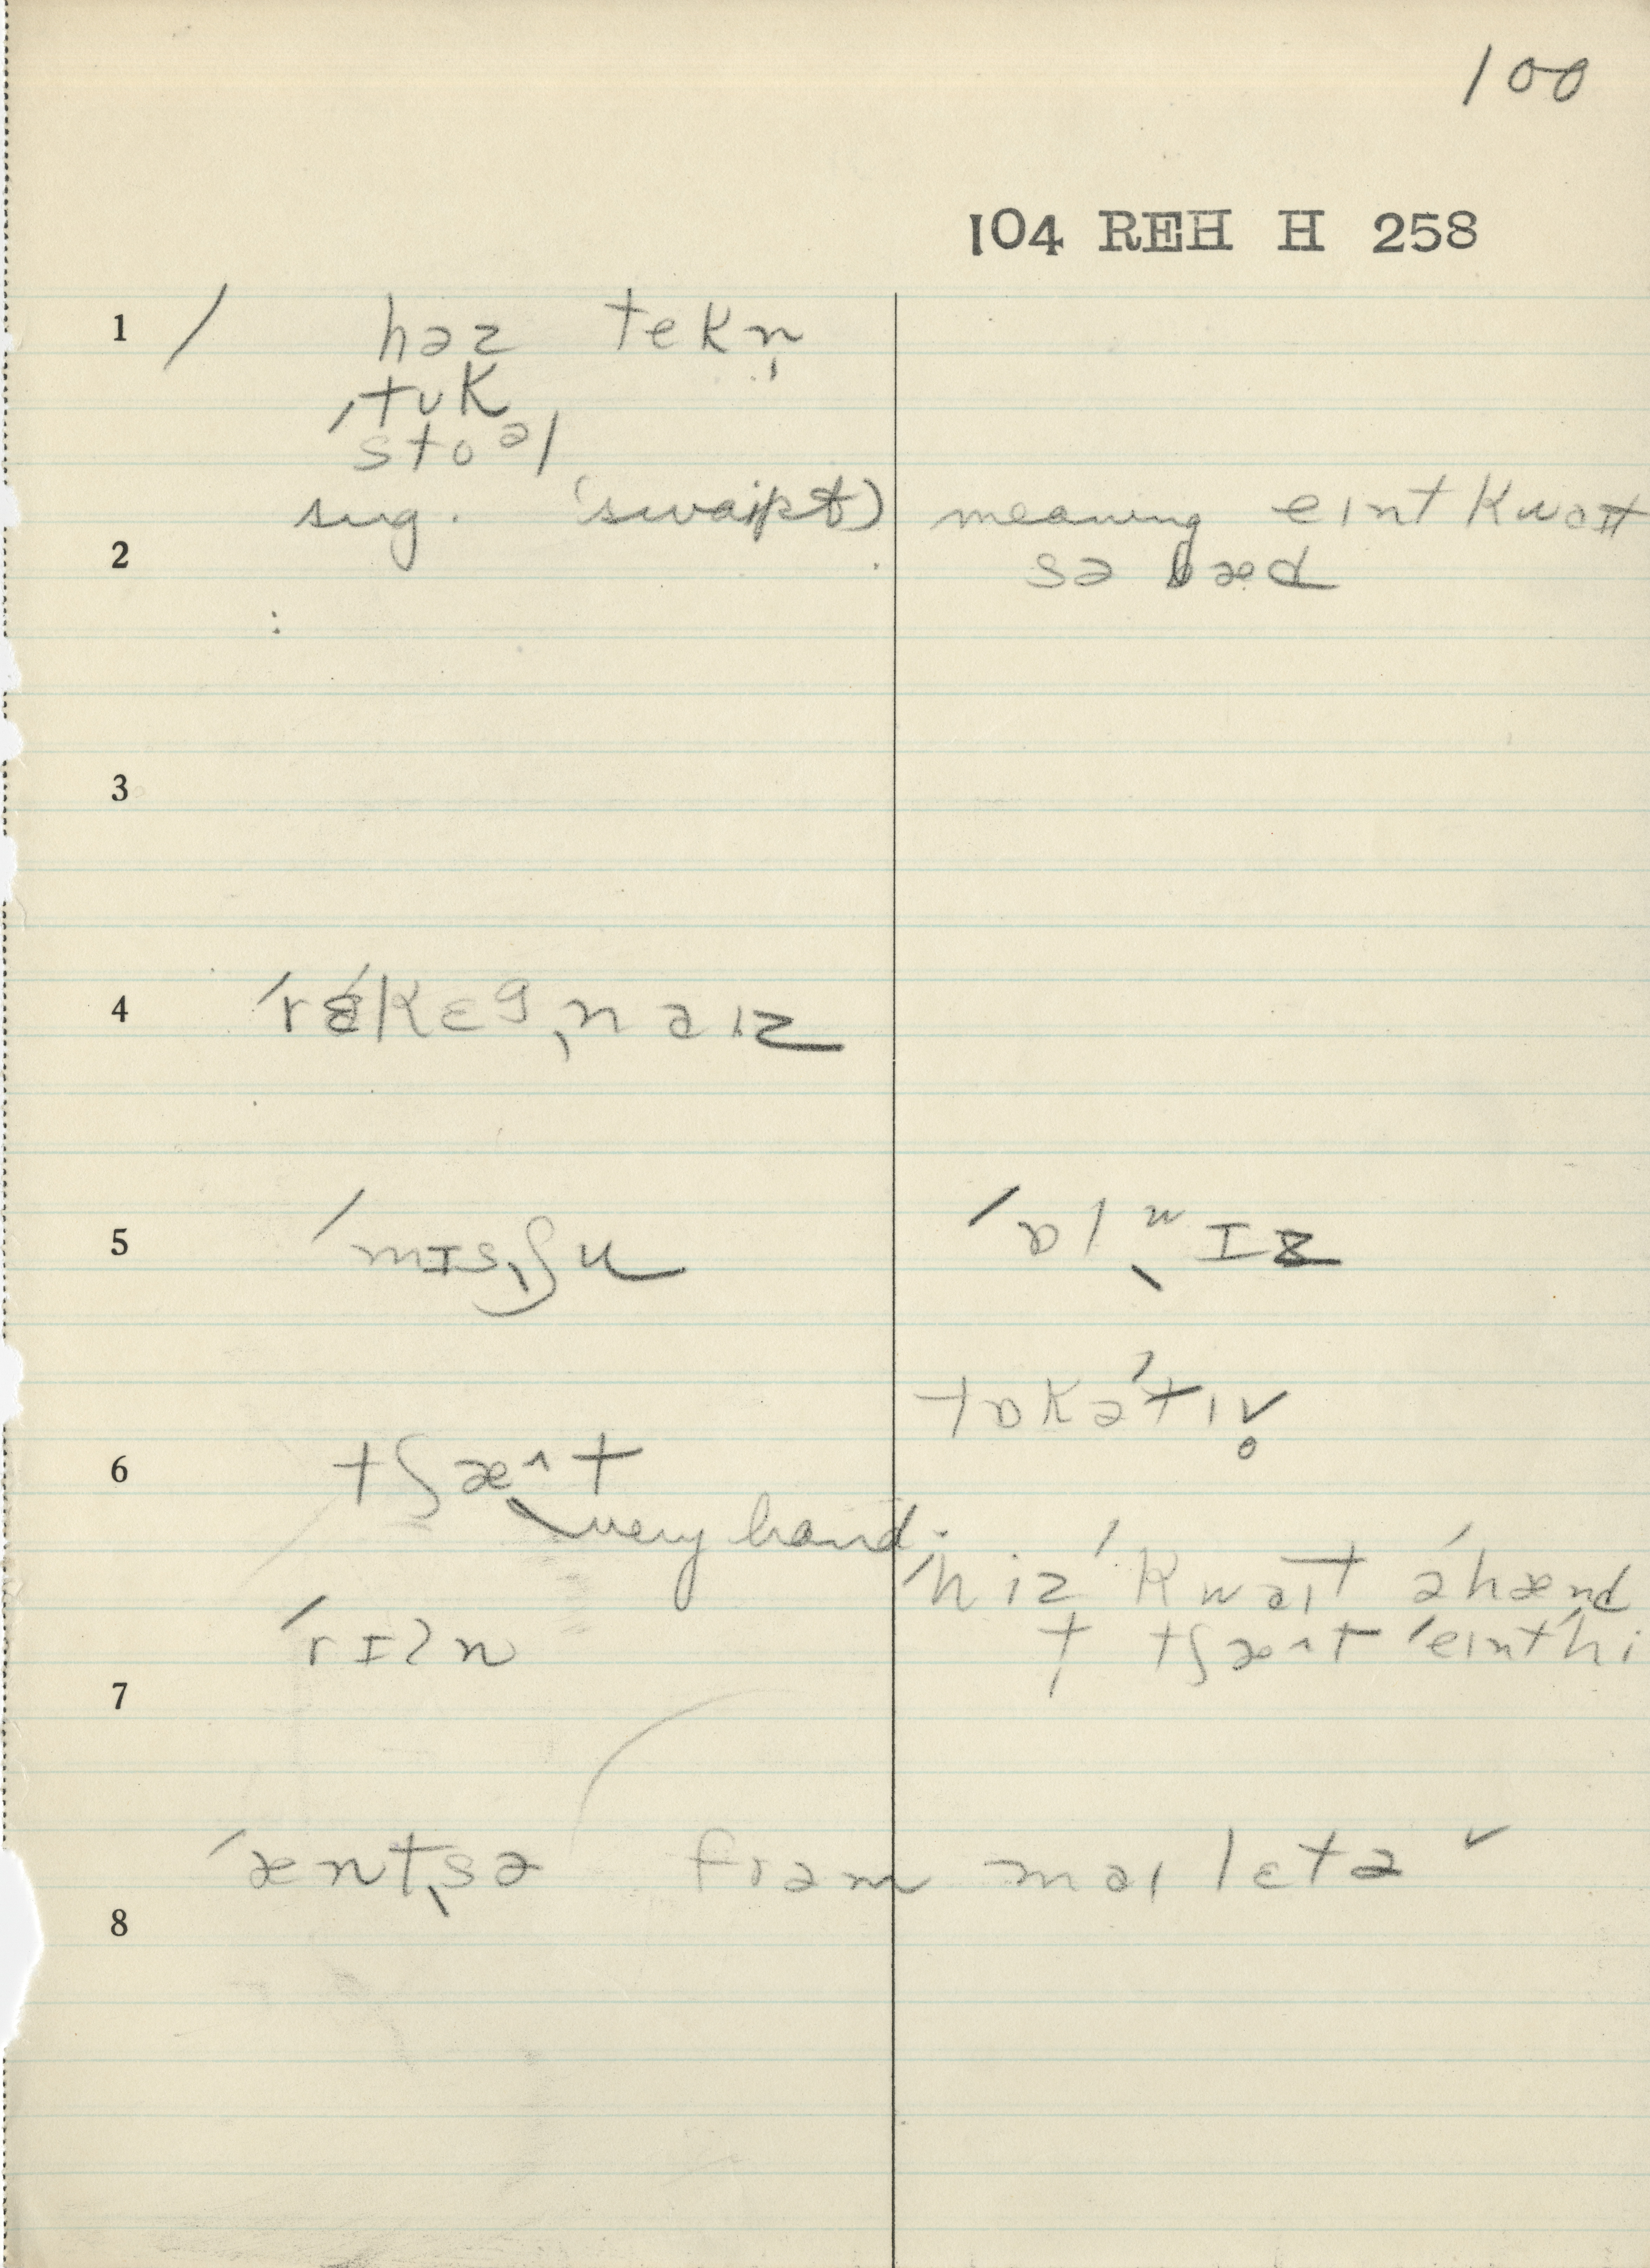 100
104 REH H 258
1 / həz tekn̩
ˌtʊk
stoəl
sug. (swaɪpt) meaning eɪnt kwaɪt
2 sə bæd
3
4 ˈrɛkɛgˌnaɪz
5 ˈmɪsˌʃu ˈɒlˌwɪz
tɒkəˈtɪv̥
6 tʃæ^t
very hand.
ˈhiz ˈkwaɪt əˈhænd
ˈrɪʔn t tʃæ^t ˈeɪnt hi
7
ˈæntˌsə frəm maɪ lɛtə ✓
8